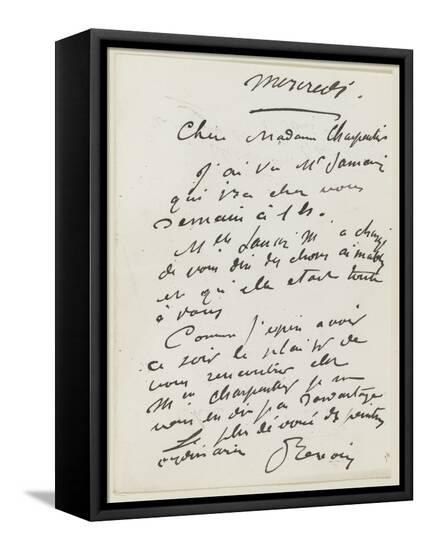 mercredi.
Chère Madame Charpentier
J'ai vu Mr
qui ira chez vous
demain à 1h.
M a chargé
de vous dire des choses aimables
et qu'elle etait toute
à vous
Comme j'espère avoir
ce soir le plaisir de
vous rencontrer chez
Charpentier je ne
vous en dis pas davantage
Le plus dévoué des peintres
ordinaires Renoir